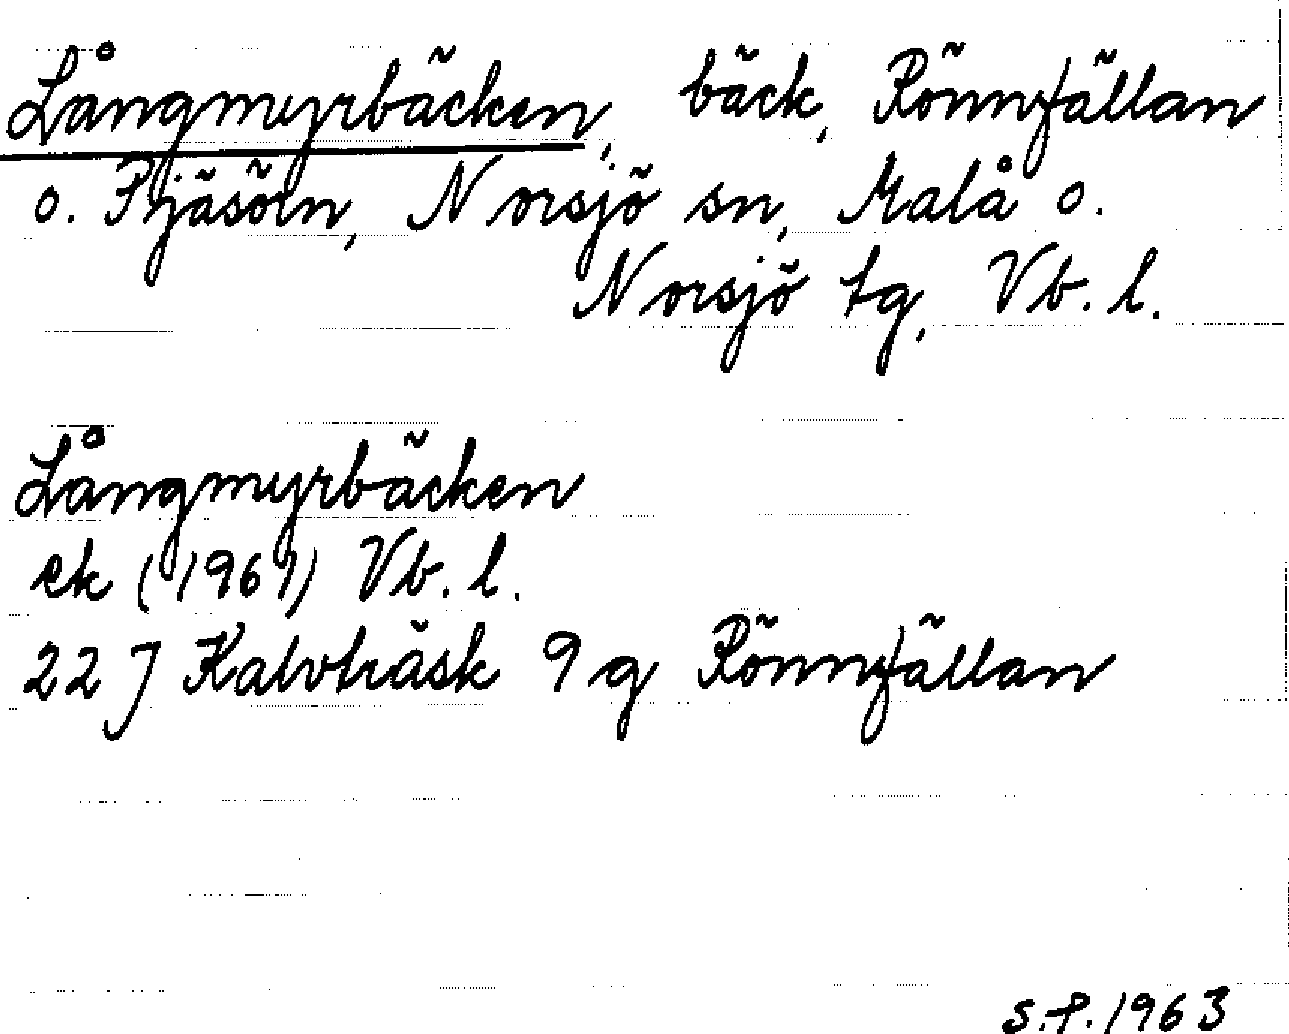 Långmyrbäcken, bäck, Rönnfällan
o. Pjäsörn, Norsjö sn, Malå o.
Norsjö tg, Vb. l.
Långmyrbäcken
ek (1961) Vb. l.
22 J Kalvträsk 9 g Rönnfällan
S.P. 1963